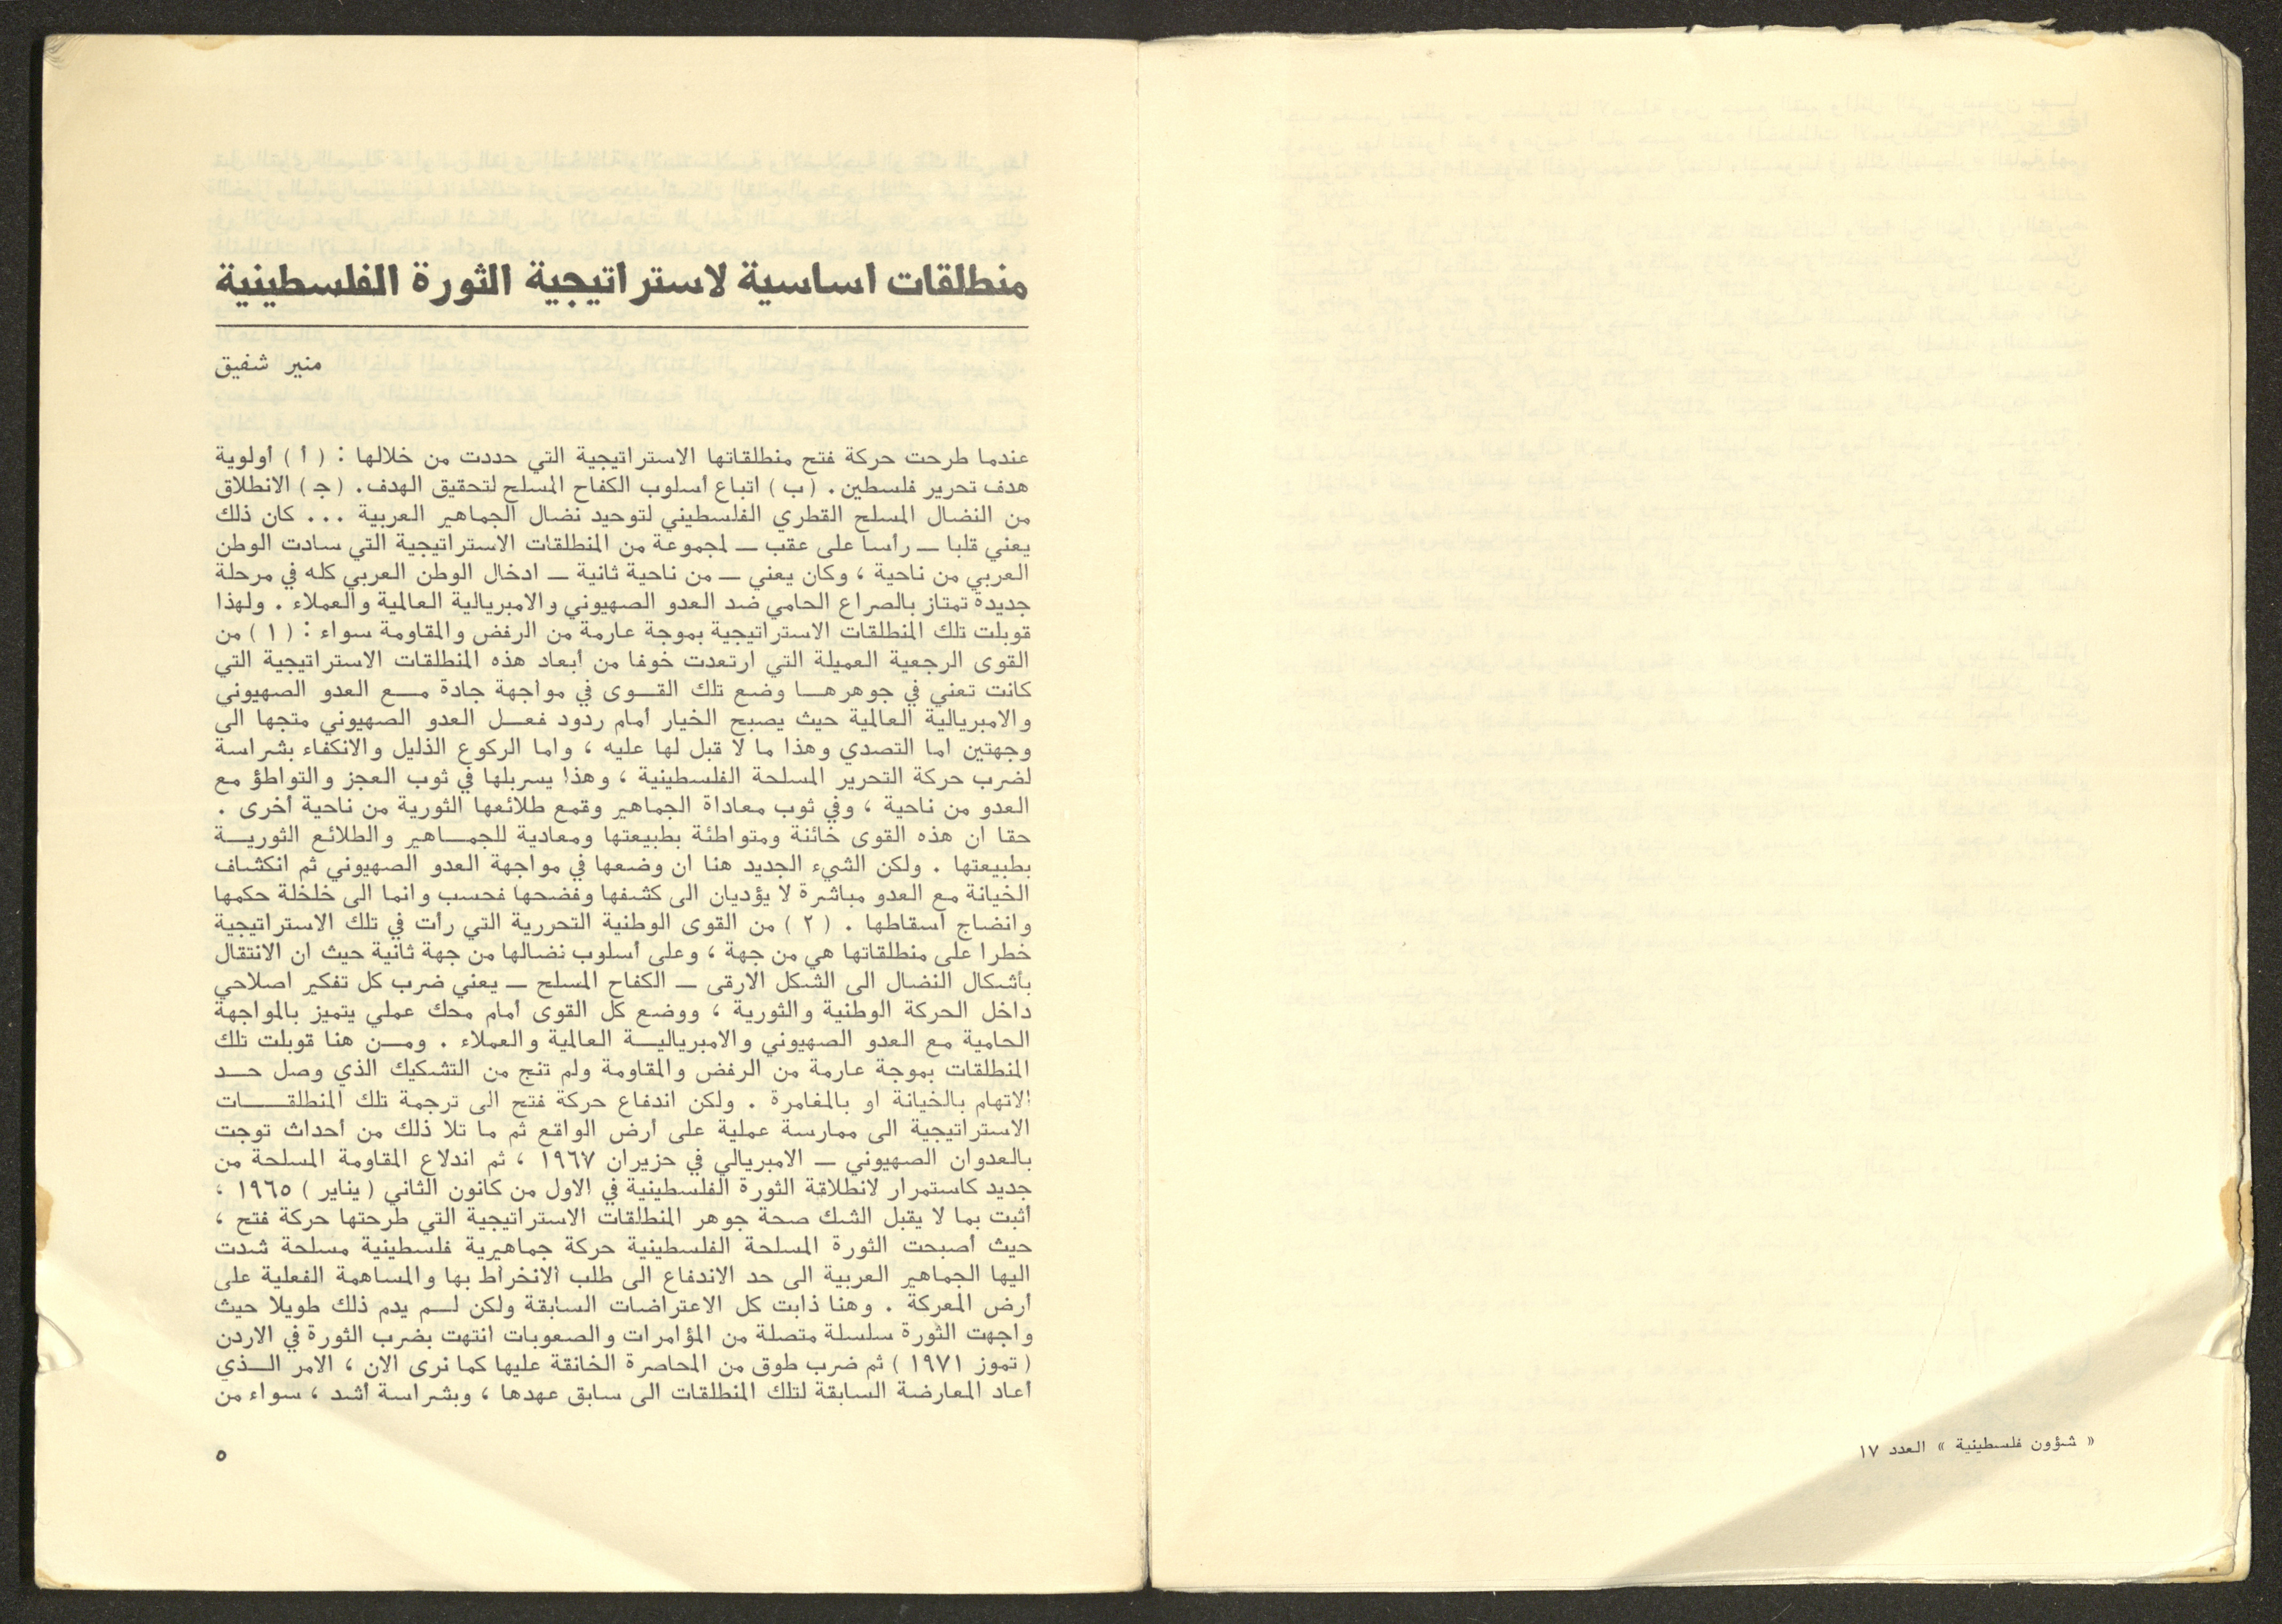 « شؤون فلسطينية » العدد ١٧
منطلقات اساسية لاستراتيجية الثورة الفلسطينية
منير شفيق
عندما طرحت حركة فتح منطلقاتها الاستراتيجية التي حددت من خلالها : ( أ ) أولوية
هدف تحرير فلسطين . ( ب ) اتباع أسلوب الكفاح المسلح لتحقيق الهدف . ( جـ ) الانطلاق
من النضال المسلح القطري الفلسطيني لتوحيد نضال الجماهير العربية ... كان ذلك
يعني قلبا ــ رأسا على عقب ــ لمجموعة من المنطلقات الاستراتيجية التي سادت الوطن
العربي من ناحية ، وكان يعني ــ من ناحية ثانية ــ ادخال الوطن العربي كله في مرحلة
جديدة تمتاز بالصراع الحامي ضد العدو الصهيوني والامبريالية العالمية والعملاء . ولهذا
قوبلت تلك المنطلقات الاستراتيجية بموجة عارمة من الرفض والمقاومة سواء : ( ١ ) من
القوى الرجعية العميلة التي ارتعدت خوفا من أبعاد هذه المنطلقات الاستراتيجية التي
كانت تعني في جوهرهـــا وضع تلك القـــوى في مواجهة جادة مـــع العدو الصهيوني
والامبريالية العالمية حيث يصبح الخيار أمام ردود فعـــل العدو الصهيوني متجها الى
وجهتين اما التصدي وهذا ما لا قبل لها عليه ، واما الركوع الذليل والانكفاء بشراسة
لضرب حركة التحرير المسلحة الفلسطينية ، وهذا يسربلها في ثوب العجز والتواطؤ مع
العدو من ناحية ، وفي ثوب معاداة الجماهير وقمع طلائعها الثورية من ناحية أخرى .
حقا ان هذه القوى خائنة ومتواطئة بطبيعتها ومعادية للجمـــاهير والطلائع الثوريـــة
بطبيعتها . ولكن الشيء الجديد هنا ان وضعها في مواجهة العدو الصهيوني ثم انكشاف
الخيانة مع العدو مباشرة لا يؤديان الى كشفها وفضحها فحسب وانما الى خلخلة حكمها
وانضاج اسقاطها . ( ٢ ) من القوى الوطنية التحررية التي رأت في تلك الاستراتيجية
خطرا على منطلقاتها هي من جهة ، وعلى أسلوب نضالها من جهة ثانية حيث ان الانتقال
بأشكال النضال الى الشكل الارقى ــ الكفاح المسلح ــ يعني ضرب كل تفكير اصلاحي
داخل الحركة الوطنية والثورية ، ووضع كل القوى أمام محك عملي يتميز بالمواجهة
الحامية مع العدو الصهيوني والامبرياليـــة العالمية والعملاء . ومـــن هنا قوبلت تلك
المنطلقات بموجة عارمة من الرفض والمقاومة ولم تنج من التشكيك الذي وصل حـــد
الاتهام بالخيانة او بالمغامرة . ولكن اندفاع حركة فتح الى ترجمة تلك المنطلقـــات
الاستراتيجية الى ممارسة عملية على أرض الواقع ثم ما تلا ذلك من أحداث توجت
بالعدوان الصهيوني ــ الامبريالي في حزيران ١٩٦٧ ، ثم اندلاع المقاومة المسلحة من
جديد كاستمرار لانطلاقة الثورة الفلسطينية في الاول من كانون الثاني ( يناير ) ١٩٦٥ ،
أثبت بما لا يقبل الشك صحة جوهر المنطلقات الاستراتيجية التي طرحتها حركة فتح ،
حيث أصبحت الثورة المسلحة الفلسطينية حركة جماهيرية فلسطينية مسلحة شدت
اليها الجماهير العربية الى حد الاندفاع الى طلب الانخراط بها والمساهمة الفعلية على
أرض المعركة . وهنا ذابت كل الاعتراضات السابقة ولكن لـــم يدم ذلك طويلا حيث
واجهت الثورة سلسلة متصلة من المؤامرات والصعوبات انتهت بضرب الثورة في الاردن
( تموز ١٩٧١ ) ثم ضرب طوق من المحاصرة الخانقة عليها كما نرى الان ، الامر الـــذي
أعاد المعارضة السابقة لتلك المنطلقات الى سابق عهدها ، وبشراسة أشد ، سواء من
٥